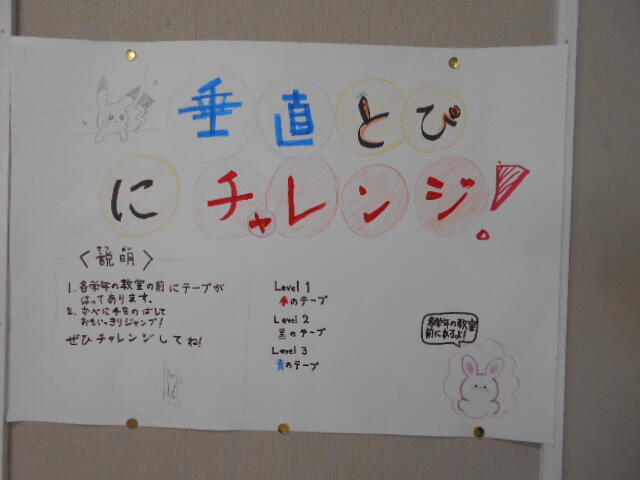 垂直とび
にチャレンジ!
〈説明〉
1. 各学年の教室の前にテープが
はってあります。
2. かべに手をのばして
おもいっきりジャンプ!
ぜひチャレンジしてね!
Level 1
赤のテープ
Level 2
黒のテープ
Level 3
青のテープ
各学年の教室
前にあるよ!